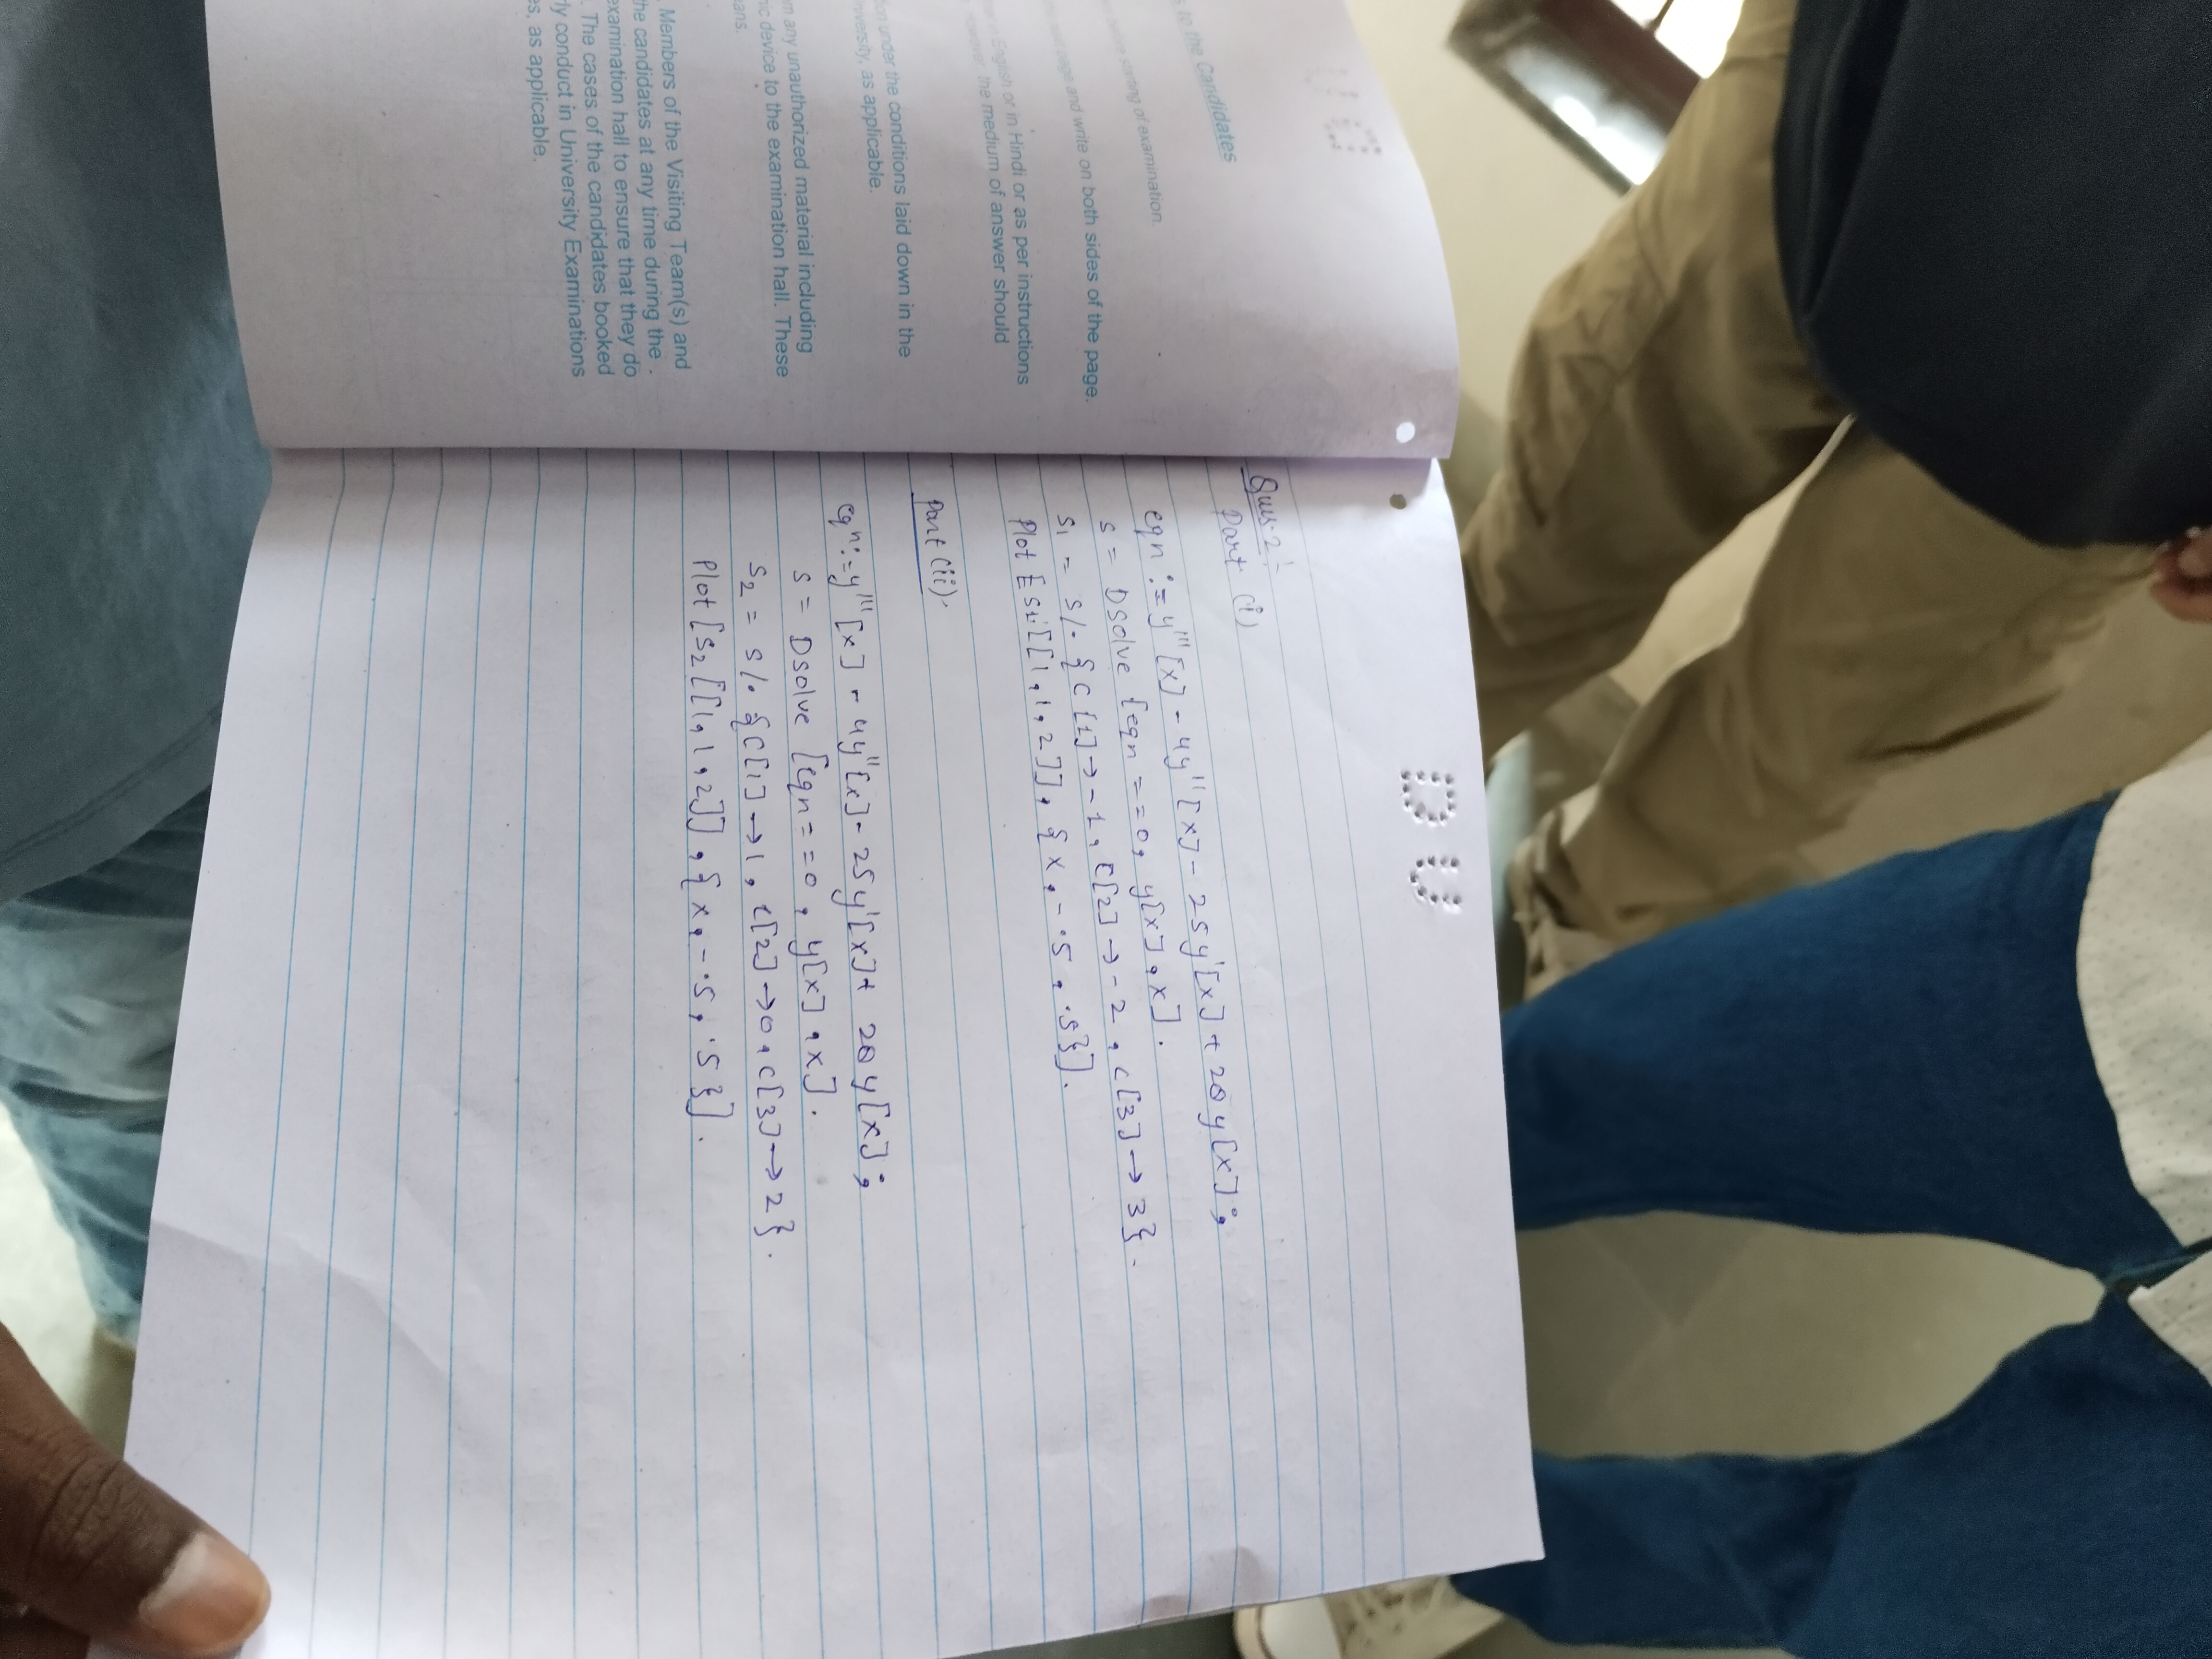 s to the Candidates
before starting of examination.
page and write on both sides of the page.
English or in Hindi or as per instructions
however, the medium of answer should
on under the conditions laid down in the
niversity, as applicable.
m any unauthorized material including
nic device to the examination hall. These
ans.
Members of the Visiting Team(s) and
he candidates at any time during the
examination hall to ensure that they do
. The cases of the candidates booked
ly conduct in University Examinations
es, as applicable.
D U
Ques-2
Part (i)
eqn := y'''[x] - 4y''[x] - 25y'[x] + 28y[x];
s = Dsolve [eqn == 0, y[x], x].
s1 = s/. {c[1] → -1, c[2] → -2, c[3] → 3}.
Plot [s1[[1,1,2]], {x, -.5, .5}].
Part (ii).
eqn := y'''[x] - 4y''[x] - 25y'[x] + 28y[x];
s = Dsolve [eqn == 0, y[x], x].
s2 = s/. {c[1] → 1, c[2] → 0, c[3] → 2}.
Plot [s2[[1,1,2]], {x, -.5, .5}].